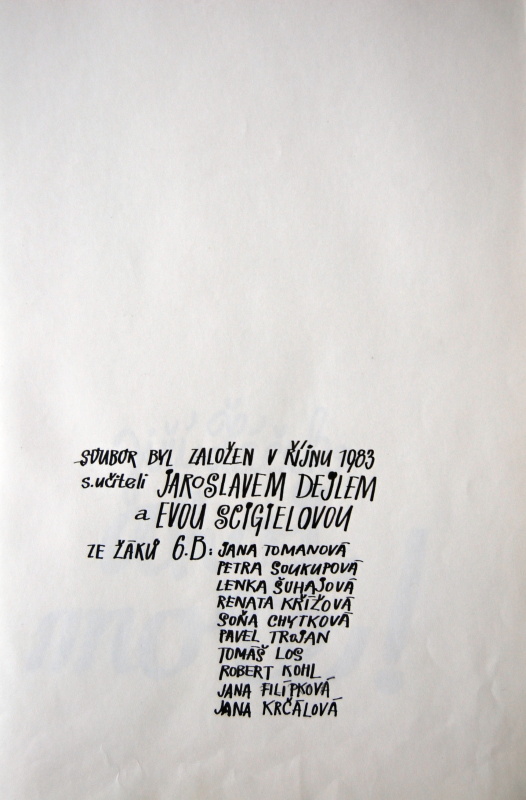 SOUBOR BYL ZALOŽEN V ŘÍJNU 1983
s.učiteli JAROSLAVEM DEJLEM
a EVOU SCIGIELOVOU
ZE ŽÁKŮ 6.B: JANA TOMANOVÁ
PETRA SOUKUPOVÁ
LENKA ŠUHAJOVÁ
RENATA KŘÍŽOVÁ
SOŇA CHYTKOVÁ
PAVEL TROJAN
TOMÁŠ LOS
ROBERT KOHL
JANA FILÍPKOVÁ
JANA KRČÁLOVÁ